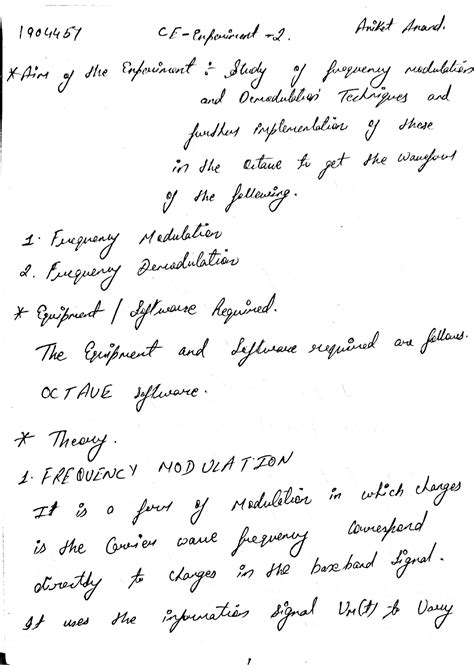 1904451 CE-Experiment -2. Aniket Anand.
* Aim of the Experiment : Study of frequency modulation
and Demodulation Techniques and
further implementation of these
in the octave to get the waveforms
of the following.
1. Frequency Modulation
2. Frequency Demodulation
* Equipment / Software Required.
The Equipment and Software required are follows.
OCTAVE software.
* Theory.
1. FREQUENCY MODULATION
It is a form of Modulation in which changes
is the Carrier wave frequency correspond
directly to changes in the baseband signal.
It uses the information signal Vm(t) to Vary
1